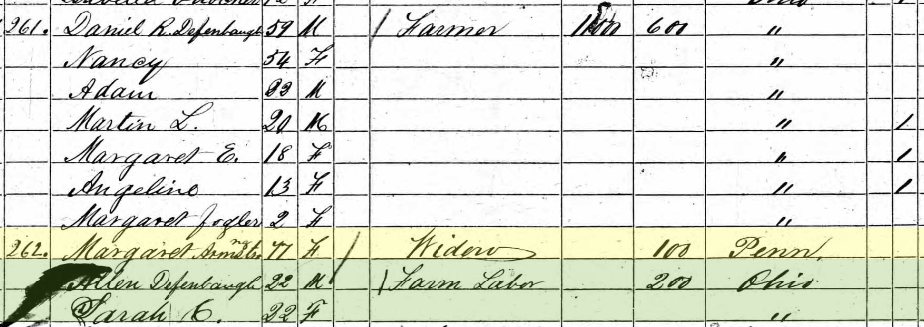 261. Daniel R. Defenbaugh 59 M / Farmer 600 "
Nancy 54 F "
Adam 23 M "
Martin L. 20 M " 1
Margaret E. 18 F " 1
Angeline 13 F " 1
Margaret Fogler 2 F "
262. Margaret 77 F / Widow 100 Penn.
Allen Defenbaugh 22 M / Farm Labor 200 Ohio
Sarah C. 22 F "